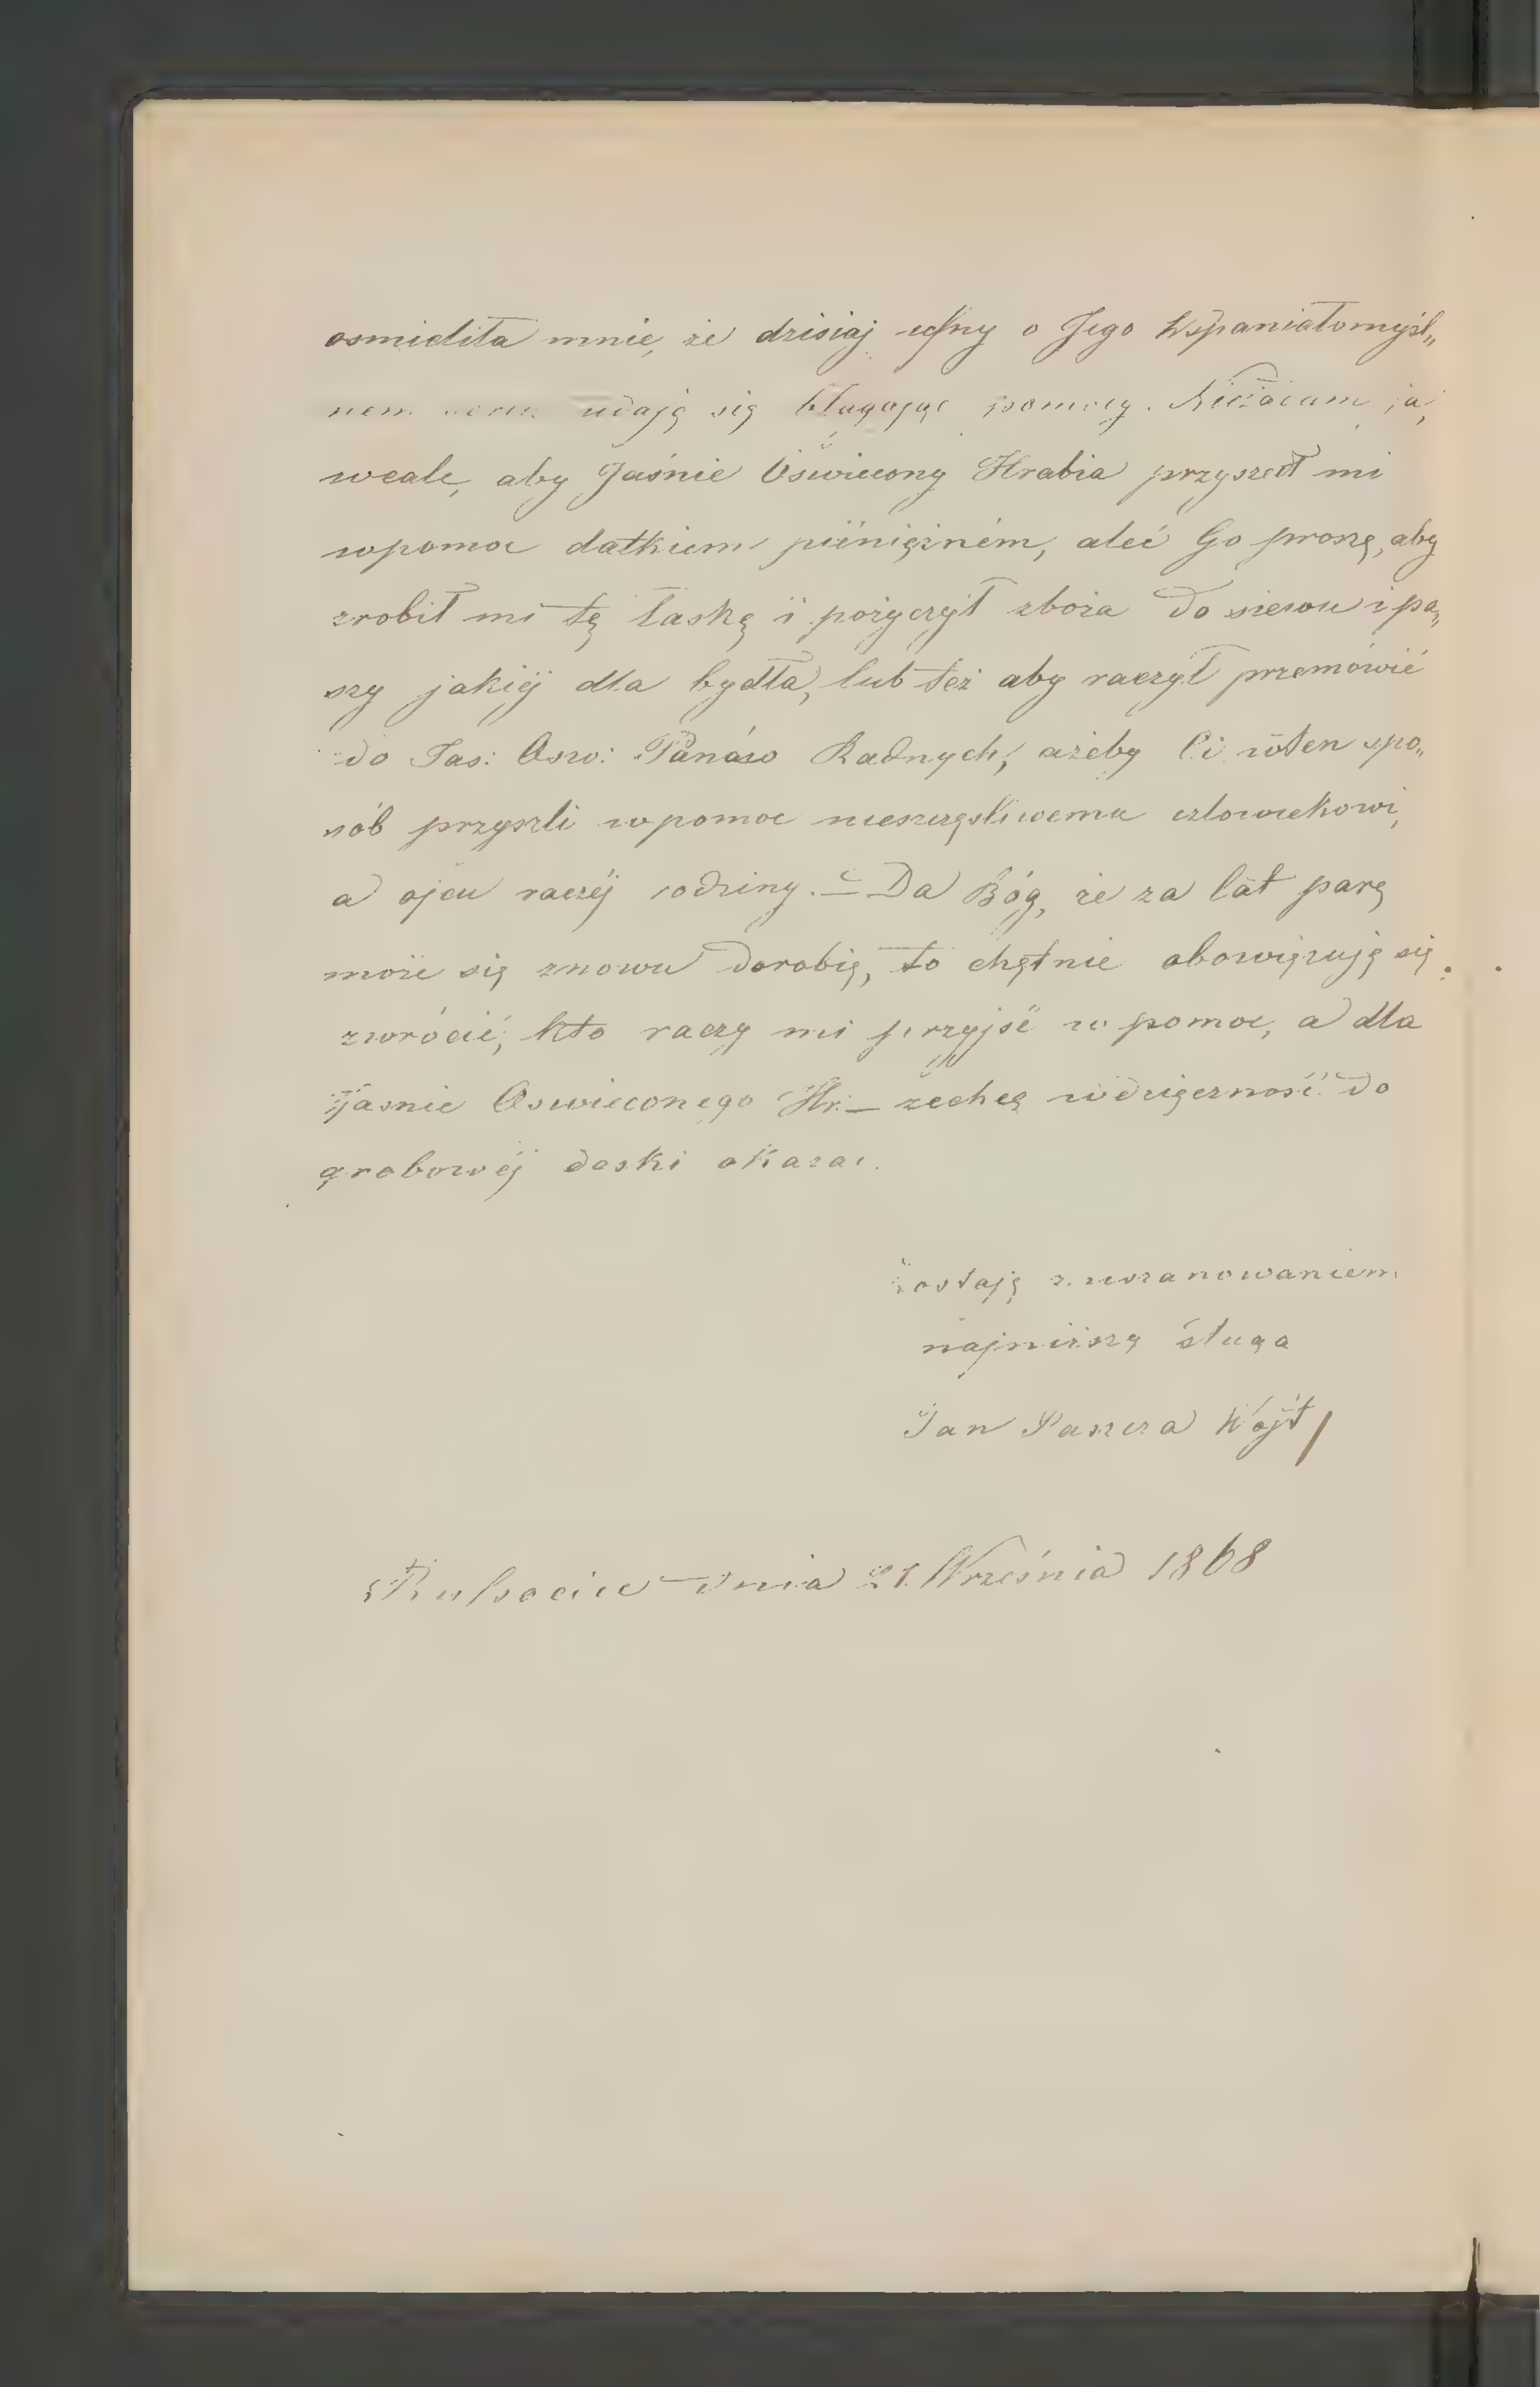 osmieliła mnie, że dzisiaj ufny o Jego Wspaniałomyśl„
nem udaję się błagając pomocy. Nieżądam ja,
wcale, aby Jaśnie Oświecony Hrabia przyszedł mi
wpomoc datkiem pieniężném, aleć Go proszę, aby
zrobił mi tę łaskę i pożyczył zboża do siewu i pa„
szy jakiéj dla bydła, lub też aby raczył przemówić
do Jas: Osw: Panów Radnych, ażeby Ci wten spo„
sób przyszli wpomoc nieszczęśliwemu człowiekowi,
a ojcu raczéj rodziny. — Da Bóg, że za lat parę
może się znowu dorobię, to chętnie obowięzuję się
zwrócić, kto raczy mi przyjść w pomoc, a dla
Jasnie Oswieconego Hr: — zechcę wdzięczność do
grobowéj deski okazac.
Zostaję z uszanowaniem
najniższy sługa
Jan Paszcza Wójt
dnia 21. Września 1868